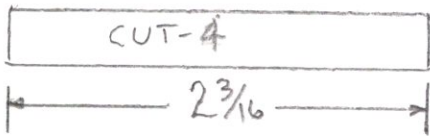 CUT-4
2 3/16